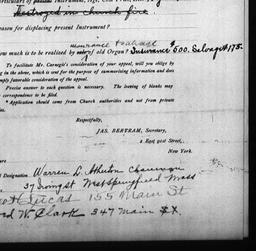 Destroyed in church fire
reason for displacing present Instrument?
Insurance
how much is to be realised by of old Organ? Insurance 500. Salvage $175.
To facilitate Mr. Carnegie's consideration of your appeal, will you oblige by
in the above, which is sent for the purpose of summarising information and does
imply favorable consideration of the appeal.
Precise answer to each question is necessary. The leaving of blanks may
correspondence to be filed.
Application should come from Church authorities and not from private
Respectfully,
JAS. BERTRAM, Secretary,
2 East 91st Street,
New York.
Designation. Warren L. Chairman
37 St West Springfield Mass
Lucas 155 Main St
W. Clark 347 Main St.